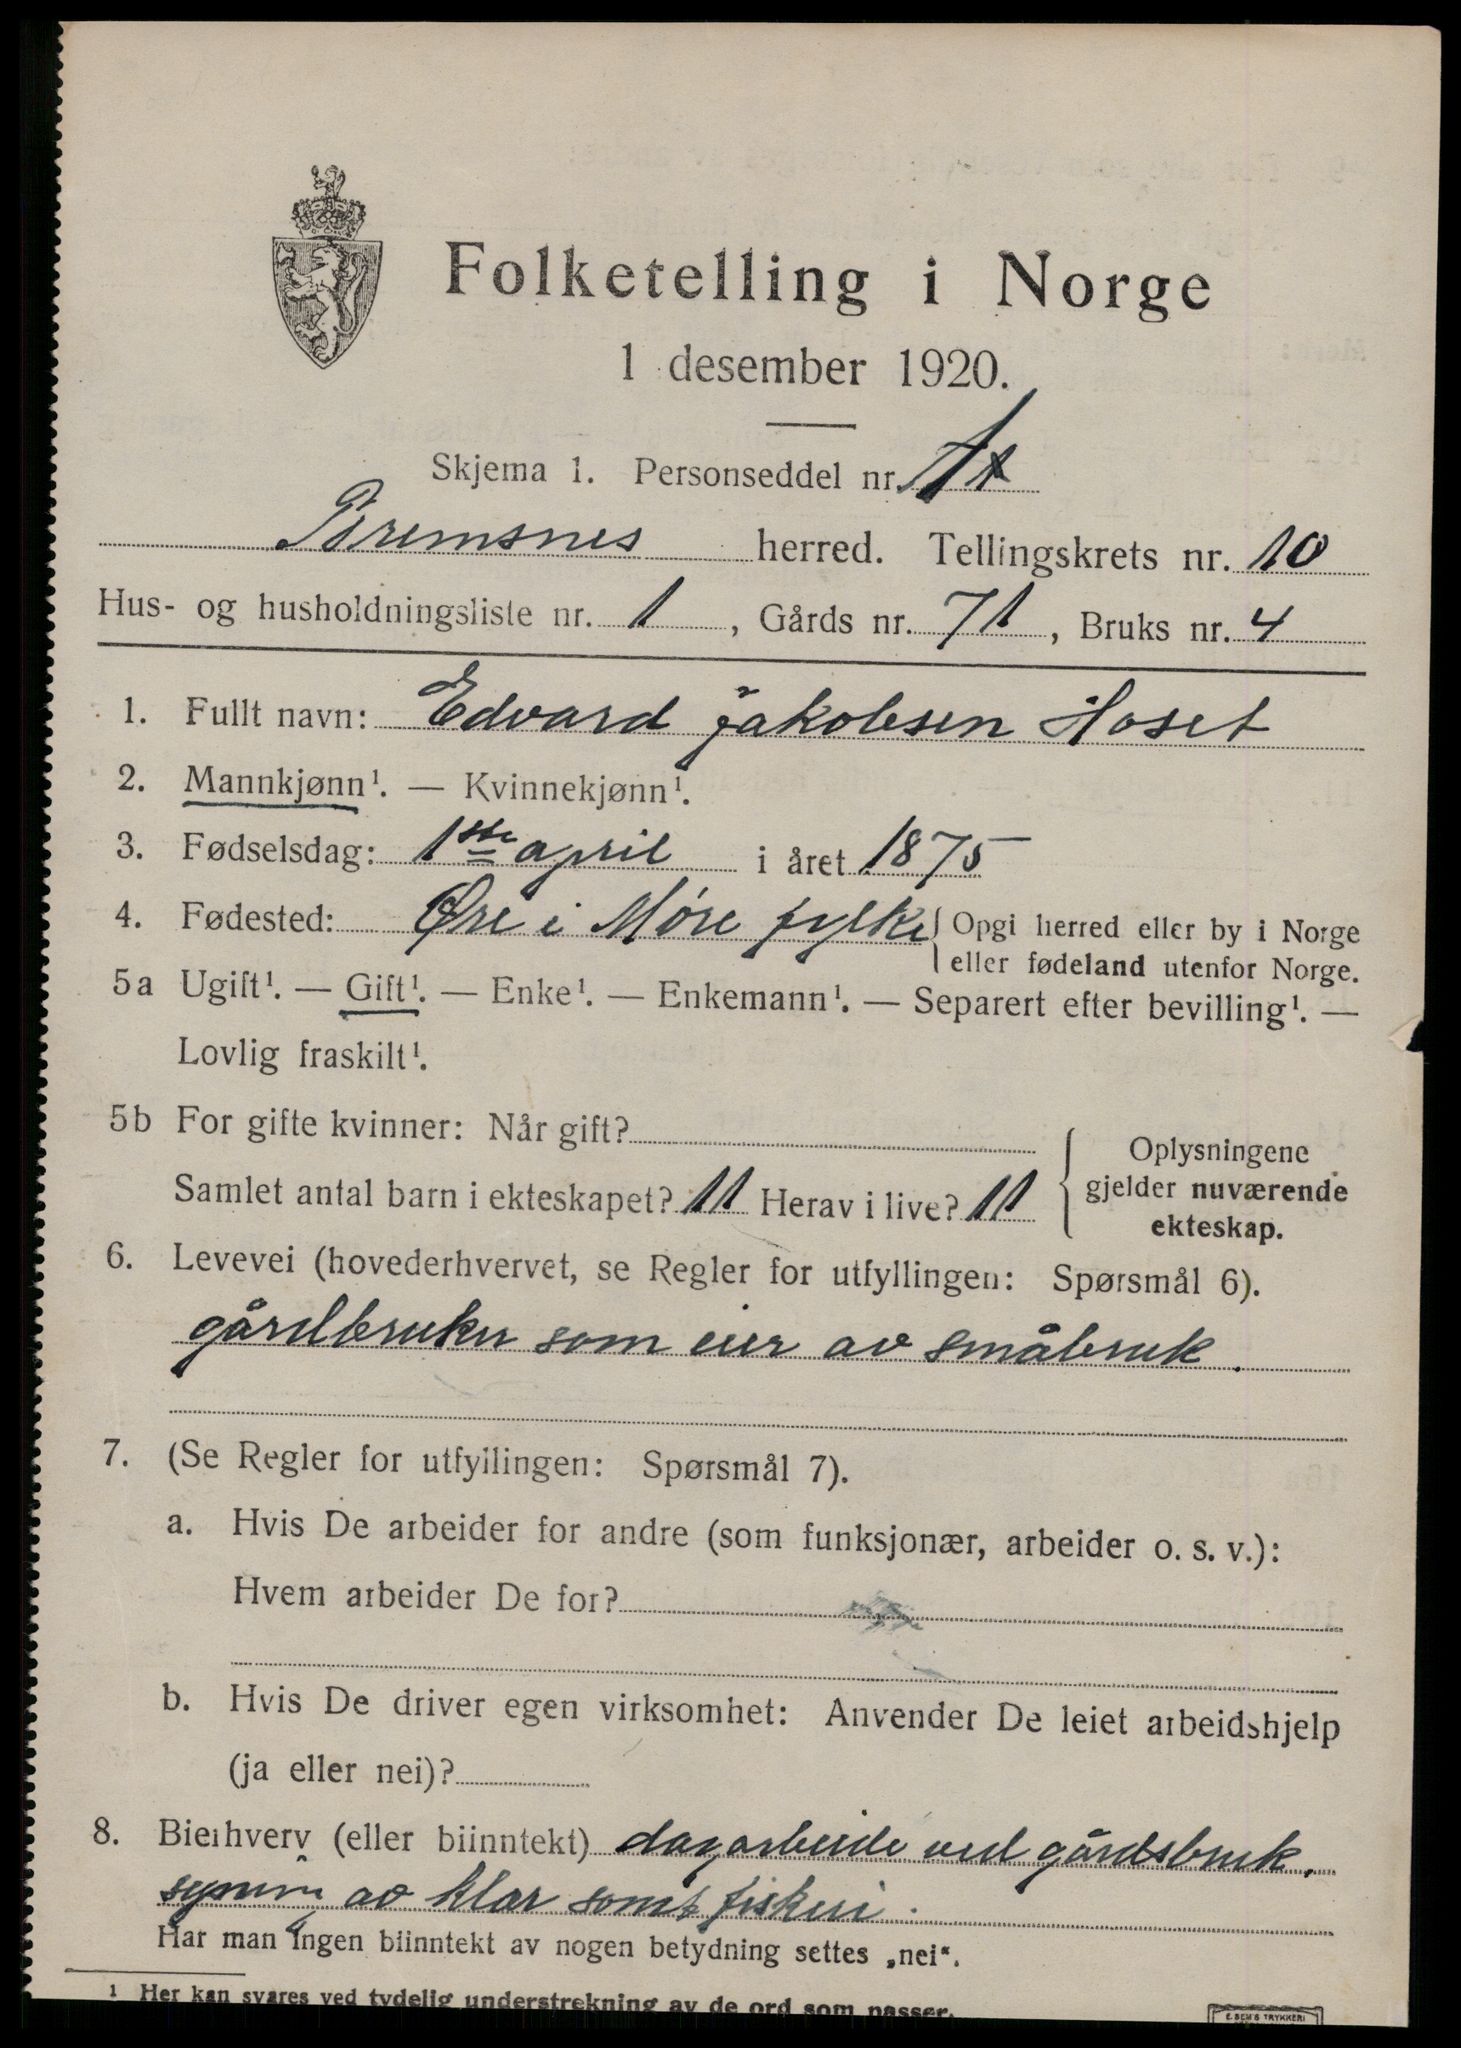 Folketelling i Norge
1 desember 1920.
Skjema 1. Personseddel nr.
Bremsnes herred. Tellingskrets nr. 10
Hus- og husholdningsliste nr. 1, Gårds nr. 71, Bruks nr. 4
1. Fullt navn: Edvard Jakobsen Hoset
2. Mannkjønn¹. — Kvinnekjønn¹.
3. Fødselsdag: 1ste april i året 1875
4. Fødested: Øre i Møre fylke { Opgi herred eller by i Norge
eller fødeland utenfor Norge.
5a Ugift¹. — Gift¹. — Enke¹. — Enkemann¹. — Separert efter bevilling¹. —
Lovlig fraskilt¹.
5b For gifte kvinner: Når gift?
Samlet antal barn i ekteskapet? 11 Herav i live? 11
{ Oplysningene
gjelder nuværende
ekteskap.
6. Levevei (hovederhvervet, se Regler for utfyllingen: Spørsmål 6).
gårdbruker som eier av småbruk.
7. (Se Regler for utfyllingen: Spørsmål 7).
a. Hvis De arbeider for andre (som funksjonær, arbeider o. s. v.):
Hvem arbeider De for?
b. Hvis De driver egen virksomhet: Anvender De leiet arbeidshjelp
(ja eller nei)?
8. Bierhverv (eller biinntekt) dagarbeide ved gårdsbruk,
av klær samt fiskeri.
Har man ingen biinntekt av nogen betydning settes „nei“.
¹ Her kan svares ved tydelig understrekning av de ord som passer.
E. SEM'S TRYKKERI